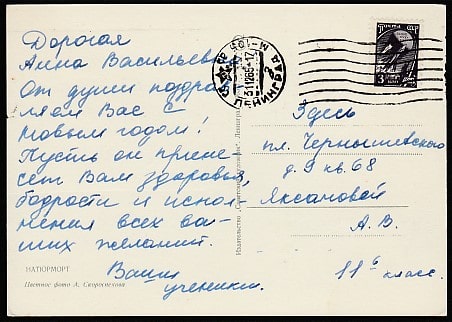 Дорогая
Анна Васильевна
От души поздрав-
ляем Вас с
Новым годом!
Пусть он прине-
сет Вам здоровья,
бодрости и испол-
нения всех ва-
ших желаний.
Ваши
ученики.
НАТЮРМОРТ
Цветное фото А. Скороспехова
ЛЕНИНГРАД
ПОЧТА СССР
3
Здесь
пл. Чернышевского
д. 9 кв. 68
Аксановой
А. В.
11 б класс.